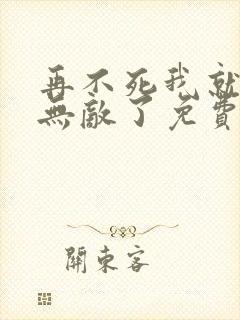 再不死我就
無敵了免費
關東客